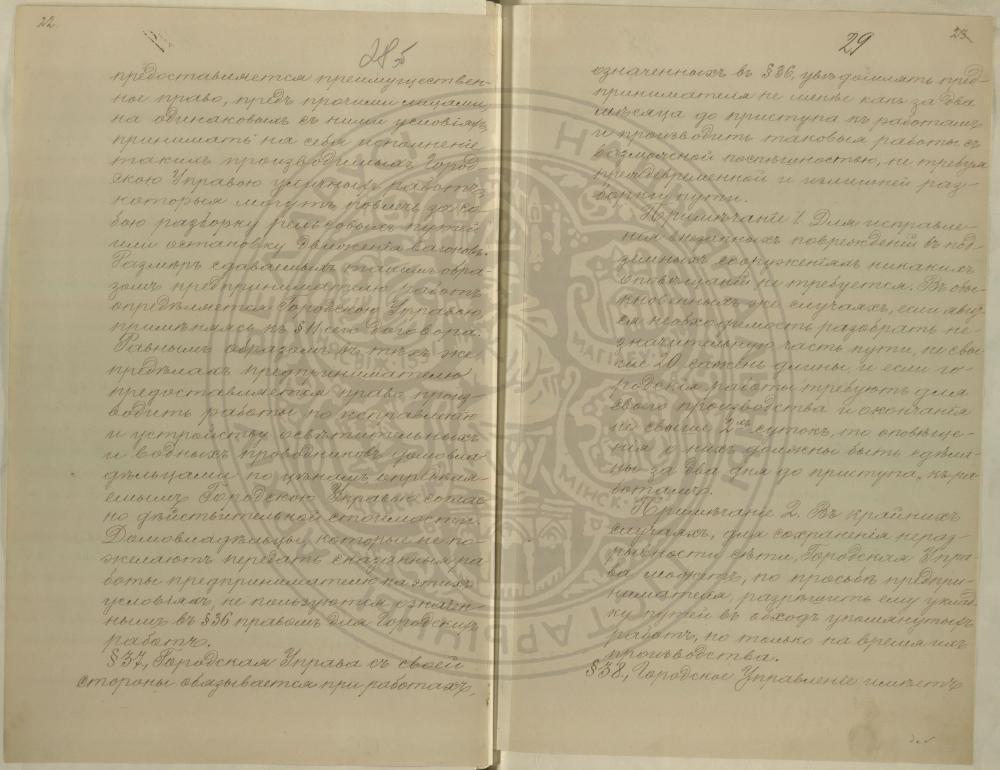 22.
28 б
предоставляется преимуществен-
ное право, предъ прочими лицами,
на одинаковыхъ съ ними условіяхъ,
принимать на себя исполненіе
такихъ производимыхъ Город-
скою Управою уличныхъ работъ,
которыя могутъ повлечь за со-
бою разборку рельсовыхъ путей
или остановку движенія вагоновъ.
Размѣръ сдаваемыхъ такимъ обра-
зомъ предпринимателю работъ
опредѣляется Городскою Управою,
примѣняясь къ § 11 сего Договора.
Равнымъ образомъ въ тѣхъ же
предѣлахъ предпринимателю
предоставляется право произ-
водить работы по исправленію
и устройству освѣтительныхъ
и водныхъ проводниковъ домовла-
дѣльцами по цѣнамъ опредѣля-
емымъ Городскою Управою соглас-
но дѣйствительной стоимости.
Домовладѣльцы, которые не по-
желаютъ передать сказанныя ра-
боты предпринимателю на этихъ
условіяхъ, не пользуются означен-
нымъ въ § 36 правомъ для Городскихъ
работъ.
§ 37, Городская Управа съ своей
стороны обязывается при работахъ,
29
23
означенныхъ въ § 36, увѣдомлять пред-
принимателя не менѣе какъ за два
мѣсяца до приступа къ работамъ
и производить таковыя работы съ
возможной поспѣшностью, не требуя
преждевременной и излишней раз-
борки пути.
Примѣчаніе 1. Для исправле-
нія внезапныхъ поврежденій въ под-
земныхъ сооруженіяхъ никакихъ
оповѣщаній не требуется. Въ обы-
кновенныхъ же случаяхъ, если явит-
ся необходимость разобрать не-
значительную часть пути, не свы-
ше 20 сажень длины, и если го-
родскія работы требуютъ для
своего производства и окончанія
не свыше 2хъ сутокъ, то оповѣще-
нія о нихъ должны быть сдѣла-
ны за два дня до приступа къ ра-
ботамъ.
Примѣчаніе 2. Въ крайнихъ
случаяхъ, для сохраненія нераз-
рывности сѣти, Городская Упра-
ва можетъ, по просьбѣ предпри-
нимателя, разрѣшить ему уклад-
ку путей въ обходъ упомянутыхъ
работъ, но только на время ихъ
производства.
§ 38, Городское Управленіе имѣетъ
МАГІЛЕЎ
МІНСК